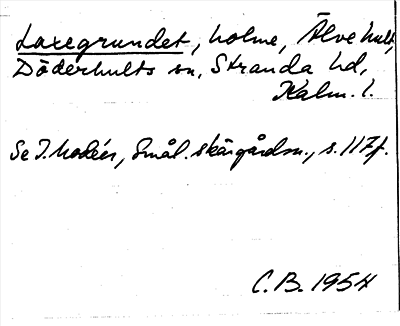 Laxegrundet, holme, Älvehult,
Döderhults sn, Stranda hd,
Kalm. l.
Se I. Modéer, Smål. skärgårdsn., s. 117f.
C.B. 1954